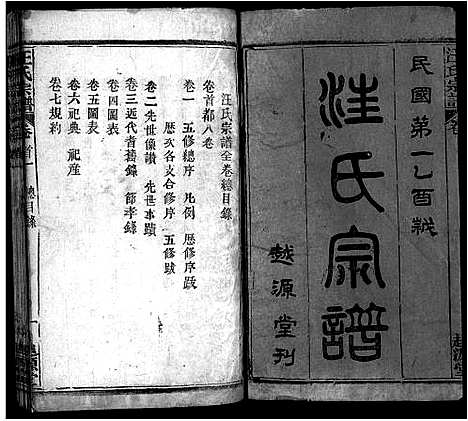 民國第一乙酉秋
汪氏宗譜
越源堂刊
汪氏宗譜
越源堂
汪氏宗譜全卷總目錄
卷首都八卷
卷一 五修總序 凡例 歷修序跋
歷亥各支合修序 五修跋
卷二先世像讚 先世事蹟
卷三近代者舊錄 節孝錄
卷四圖表
卷五圖表
卷六祀典 祀產
卷七規約
汪氏宗譜 卷首
總目錄